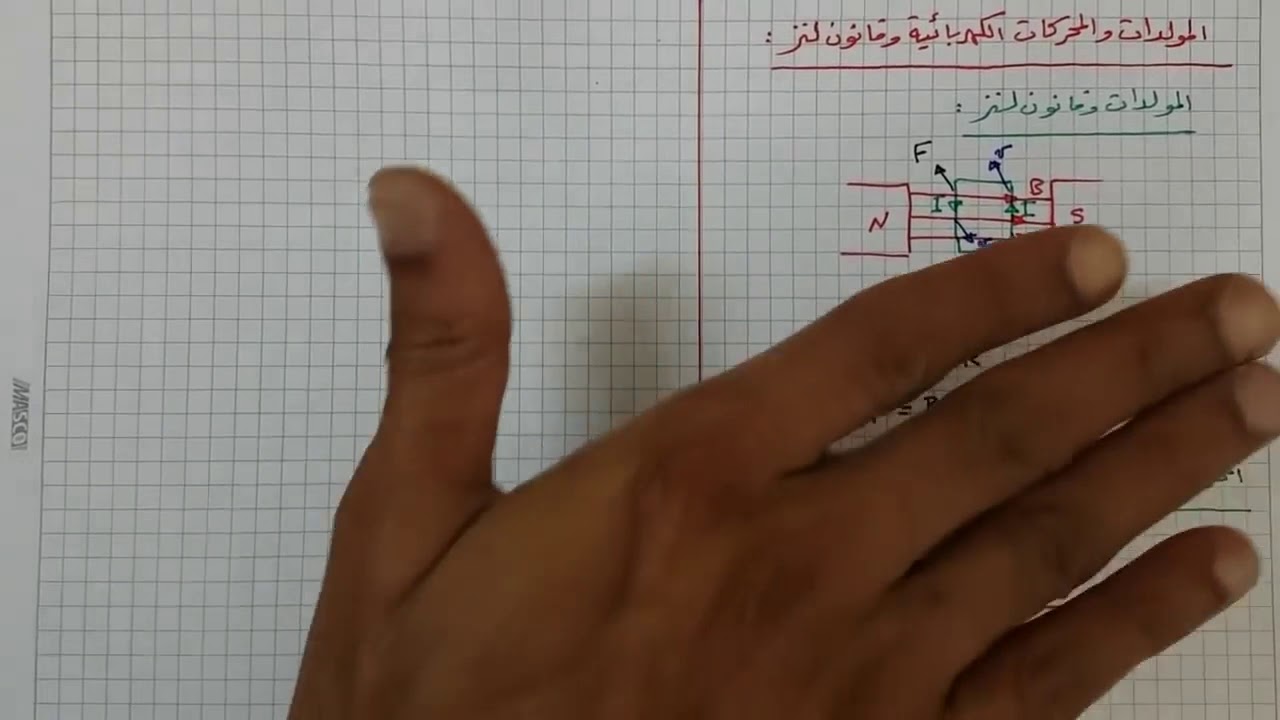 المولدات والمحركات الكهربائية وقانون لنز :
المولدات وقانون لنز :
F v
B
I I
N S
v
=
MASCO